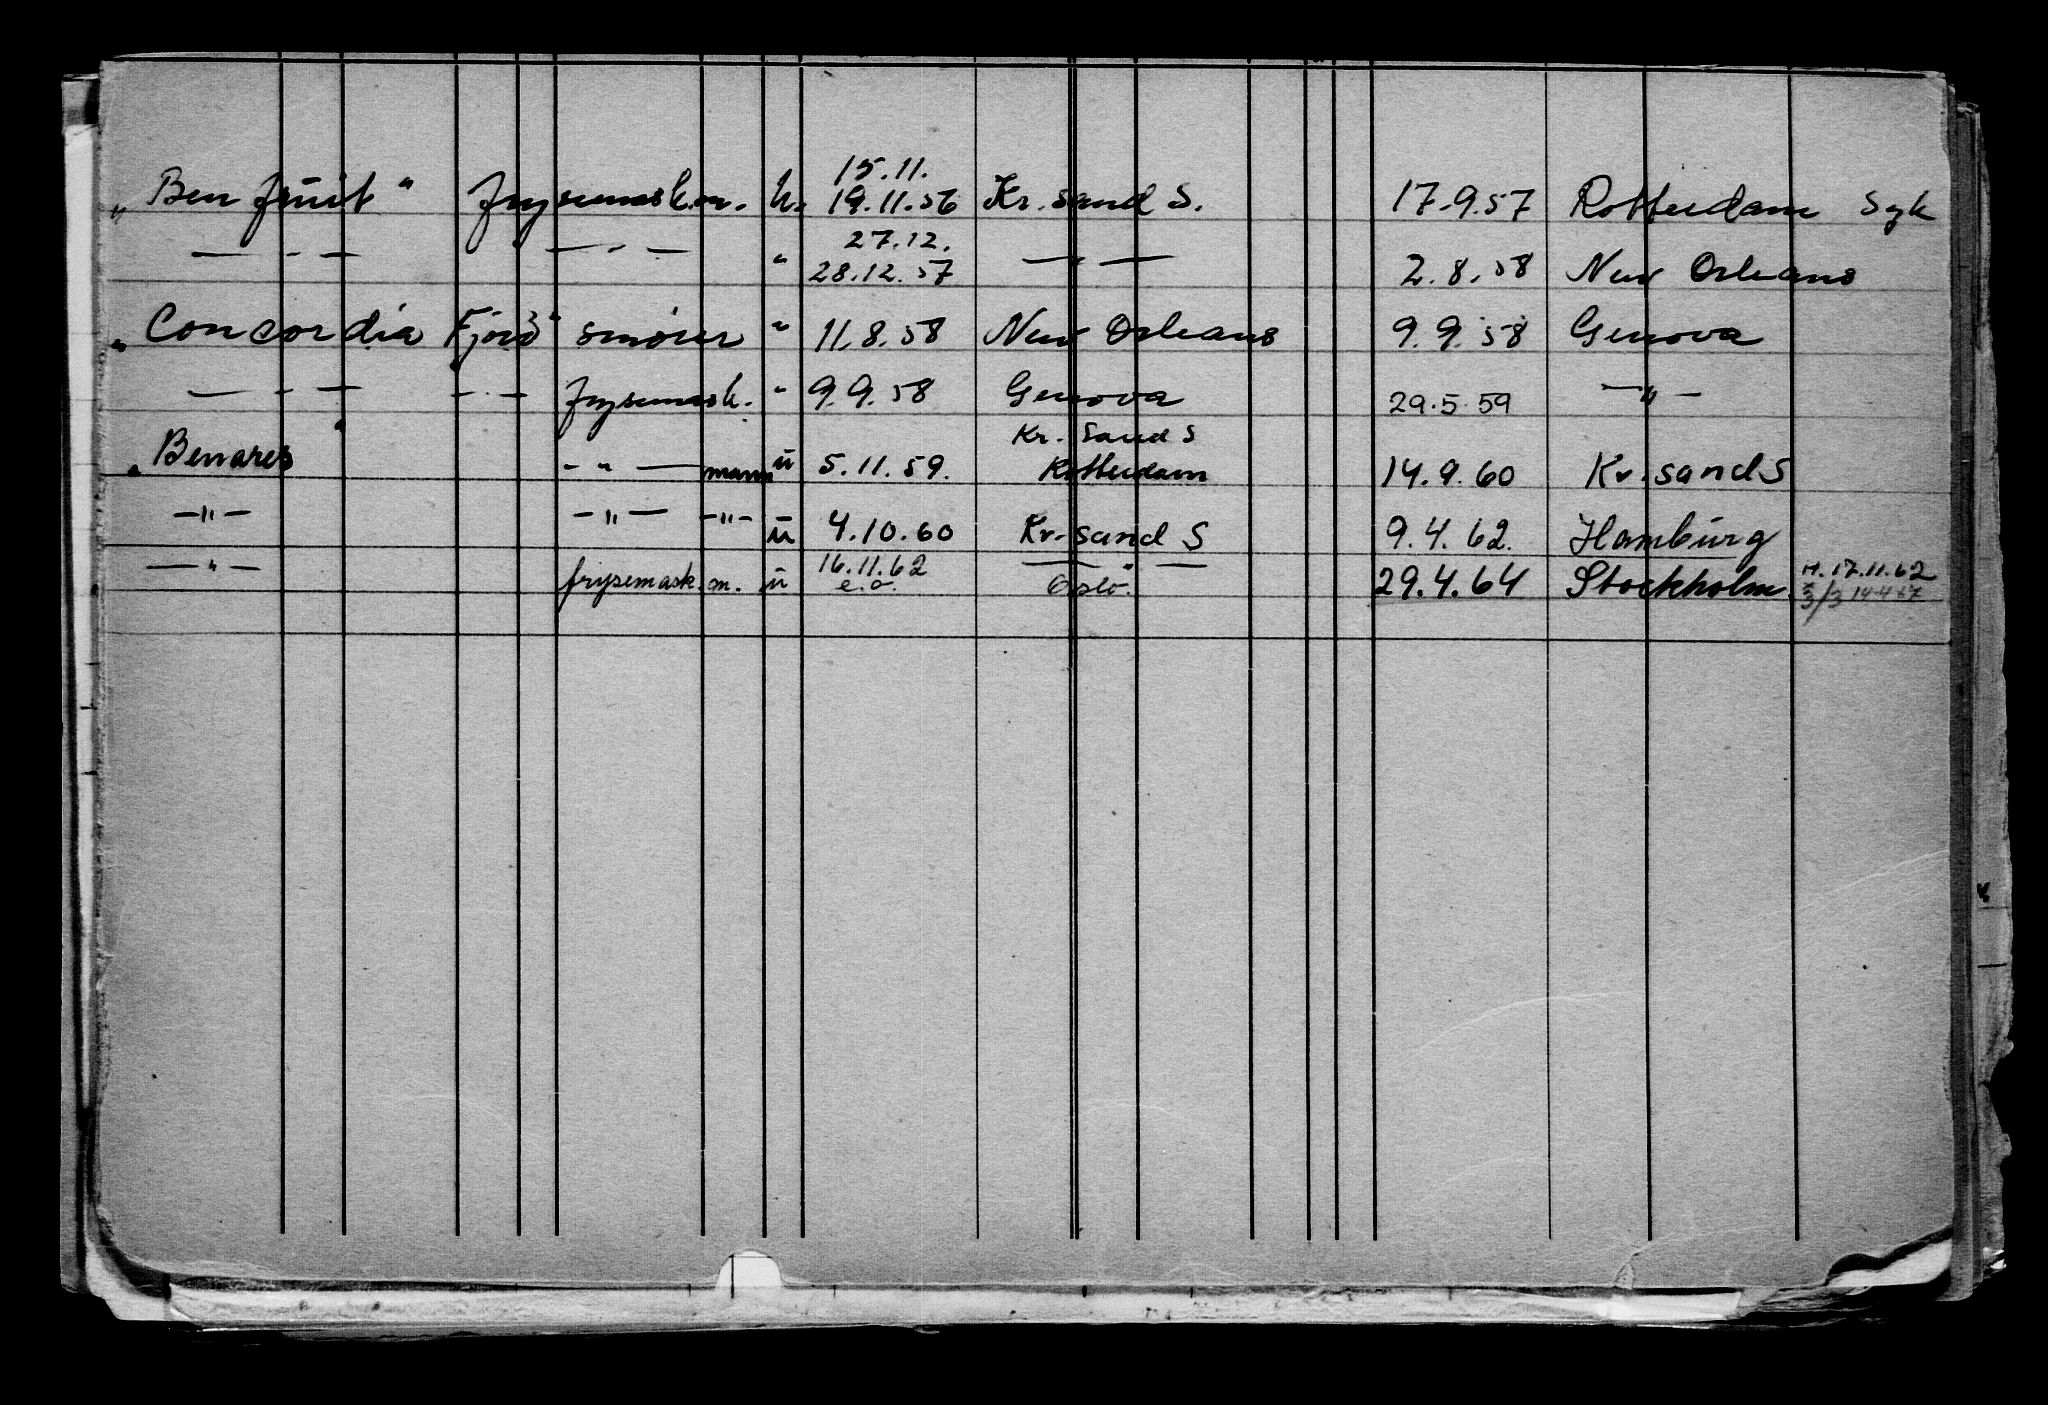 15.11.
„Ben fruit" frysemask.m. u. 19.11.56 Kr.sand S. 17.9.57 Rotterdam Syk
27.12.
— " — — " — " 28.12.57 — " — 2.8.58 New Orleans
„Concordia Fjord" smører " 11.8.58 New Orleans 9.9.58 Genova
— " — — " — frysemask. " 9.9.58 Genova 29.5.59 — " —
Kr. Sand S
„Benares" — " — mann u 5.11.59. Rotterdam 14.9.60 Kr.sand S
— " — — " — — " — u 4.10.60 Kr.sand S 9.4.62. Hamburg
— " — frysemask.m. u 16.11.62 — " — 29.4.64 Stockholm M. 17.11.62
e.o. Oslo. 3/3